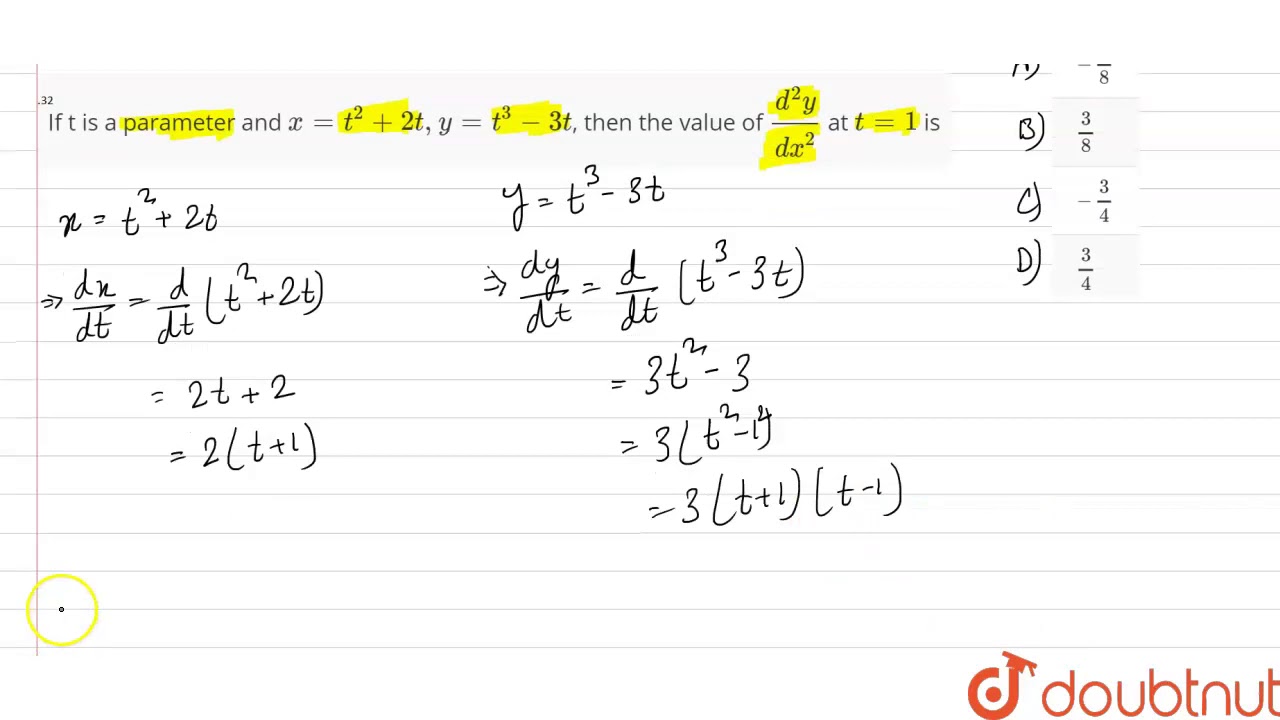 .32
If t is a parameter and x = t² + 2t, y = t³ − 3t, then the value of d²y/dx² at t = 1 is
A) −/8
B) 3/8
C) −3/4
D) 3/4
x = t² + 2t
⇒ dx/dt = d/dt (t² + 2t)
= 2t + 2
= 2(t+1)
y = t³ − 3t
⇒ dy/dt = d/dt (t³ − 3t)
= 3t² − 3
= 3(t² − 1²)
= 3(t+1)(t−1)
doubtnut